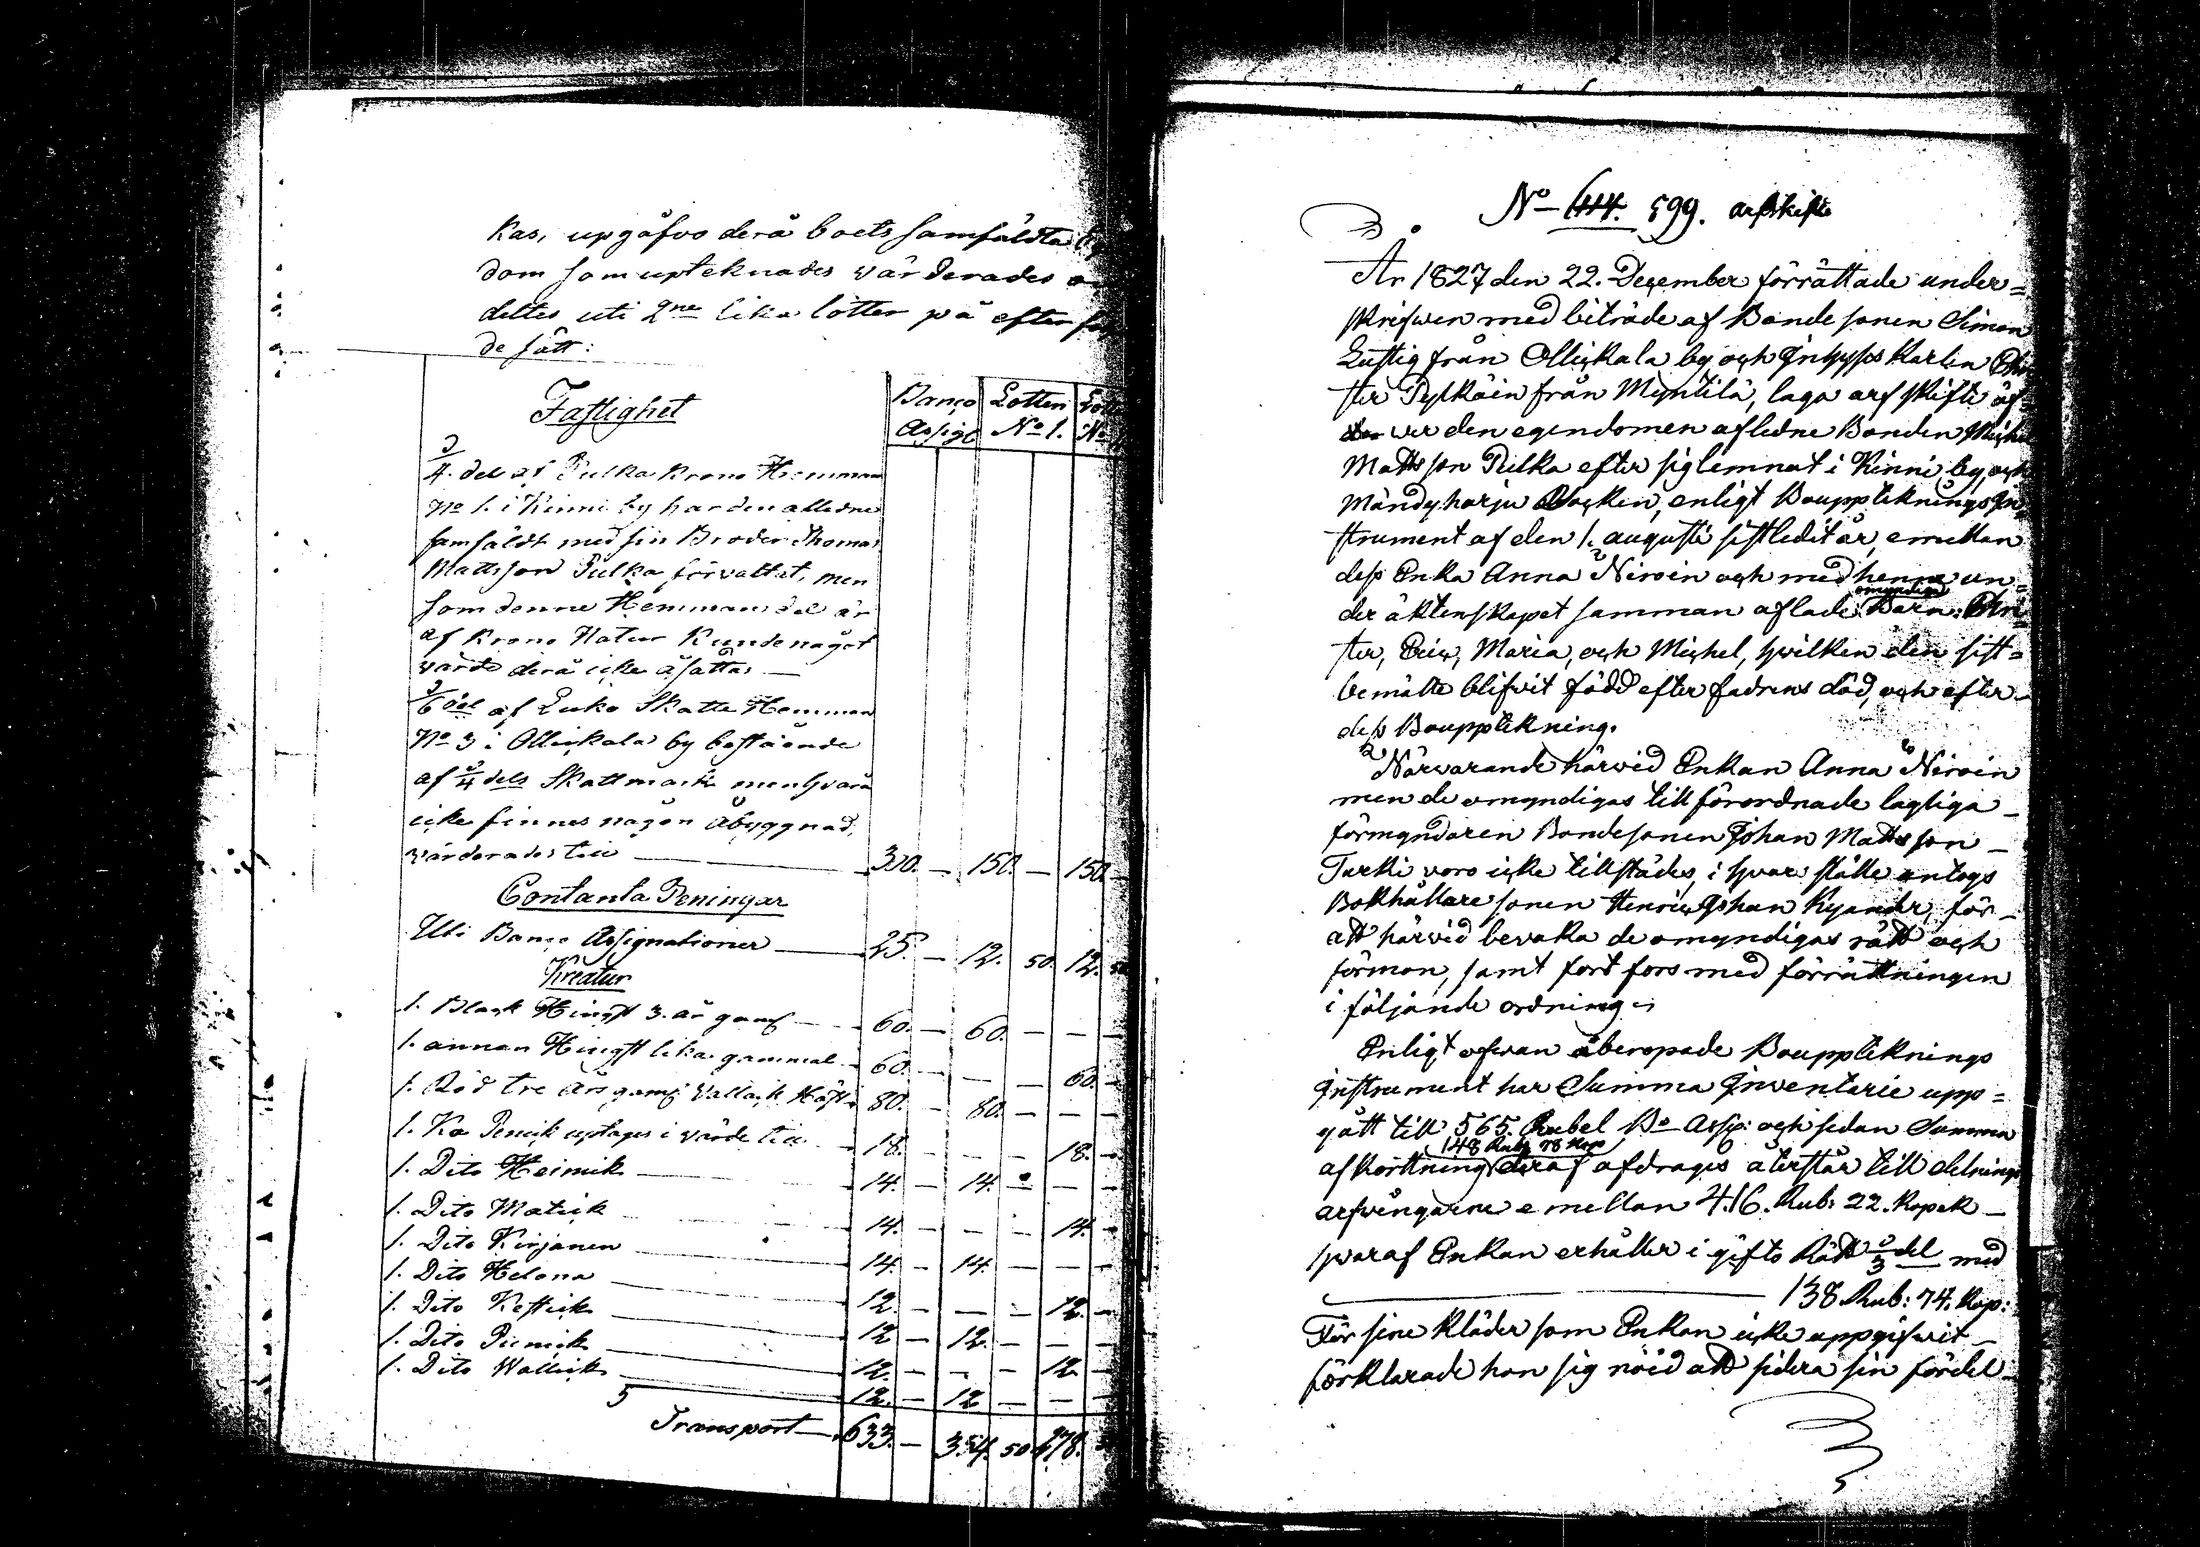 Kas, upgåfvo derå boets samfäldta
dom som upteknades värderades
deltes uti 2ne lika lotter på efter
de sätt:
Fastighet
Banco Assigt
Lotten No 1.
3/4. del af Pulka Krono Hemman
No 1. i Kinni by har den aflidne
samfäldt med sin Broder Thomas
Mattsson Pulka förvaltat, men
som denne Hemmans del är
af Krono Natur kunde något
värde derå icke åsättas —
del af Skatte Hemman
No 3 i Ollickala by bestående
af 3/4 dels Skattmark men hvarå
icke finnes någon Åbyggnad,
värderades till — 300. — 150. — 150. —
Contanta Peningar
Uti Banco Assignationer — 25. — 12. 50. 12. 50
Kreatur
1. Black Hingst 3. år gaml — 60. — 60. — — —
1. annan Hingst lika gammal — 60. — — — 60. —
1. Röd tre års gaml Vallack Häst 80. — 80. — — —
1. Ko Penik uptages i värde till — 18. — — — 18. —
1. Dito Heimik — 14. — 14. — — —
1. Dito Matik — 14. — — — 14. —
1. Dito Kirjanen — 14. — 14. — — —
1. Dito Helona — 12. — — — 12. —
1. Dito — 12 — 12. — — —
1. Dito — 12. — — — 12 —
1. Dito — 12. — 12 — — —
Transport — 633. — 354. 50 278.
No 414. 599. arfskifte
År 1827 den 22. December förrättade under=
skrifwen med biträde af Bonde sonen Simon
Lustig från Ollickala by och Karlen
ster Pylkäin från Myntilä, laga arfskifte öf=
wer den egendomen aflidne Bonden
Matts son Pulka efter sig lemnat i Kinni by, och
Mändyharju Socken, enligt Bouppteknings In
strument af den 1. augusti sistledit år, emellan
dess Enka Anna Niroin och med henne un=
der äktenskapet samman aflade omyndiga Barn: Chri
ster, Eric, Maria, och Michel, hvilken den sist=
bemälte blifvit född efter fadrens död, och efter
dess BouppteknIng.
Närvarande härvid Enkan Anna Niroin
men de omyndigas till förordnade lagliga
förmyndaren Bondesonen Johan Matts son
Turki voro icke tillstädes, i hvars ställe antogs
Bokhållare sonen Henric Johan Kyander, för
att härvid bevaka de omyndigas rätt och
förmon, samt fort fors med förrättningen
i följande ordning
Enligt ofwan åberopade Bouppteknings
Instrument har Summa Inventarie upp=
gått till 565 Rubel Bo Assig: och sedan Summa
148 Rub 78 Kop
afkortning deraf afdrages återstår till delning
arfvingarne emellan 416. Rub: 22. Kopek
hvaraf Enkan erhåller i gifto Rätt 1/3 del med
138 Rub: 74. Kop:
För sine kläder som Enkan icke uppgifvit
förklarade hon sig nöid att sidera sin fördel